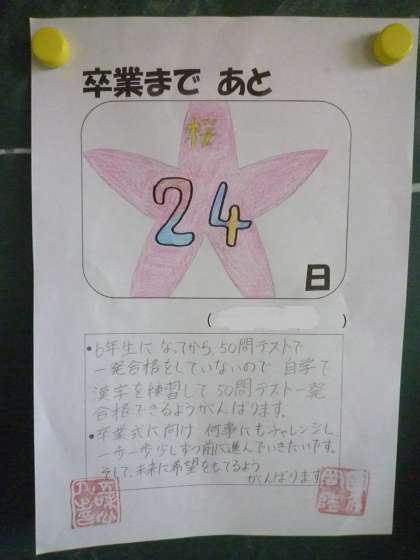 卒業まで あと
桜
24
日
( )
• 6年生になってから、50問テストで
一発合格をしていないので 自学で
漢字を練習して 50問テスト一発
合格できるようがんばります。
• 卒業式に向け 何事にもチャレンジし、
一歩一歩少しずつ前に進んでいきたいです。
そして、未来に希望をもてるよう
がんばります。